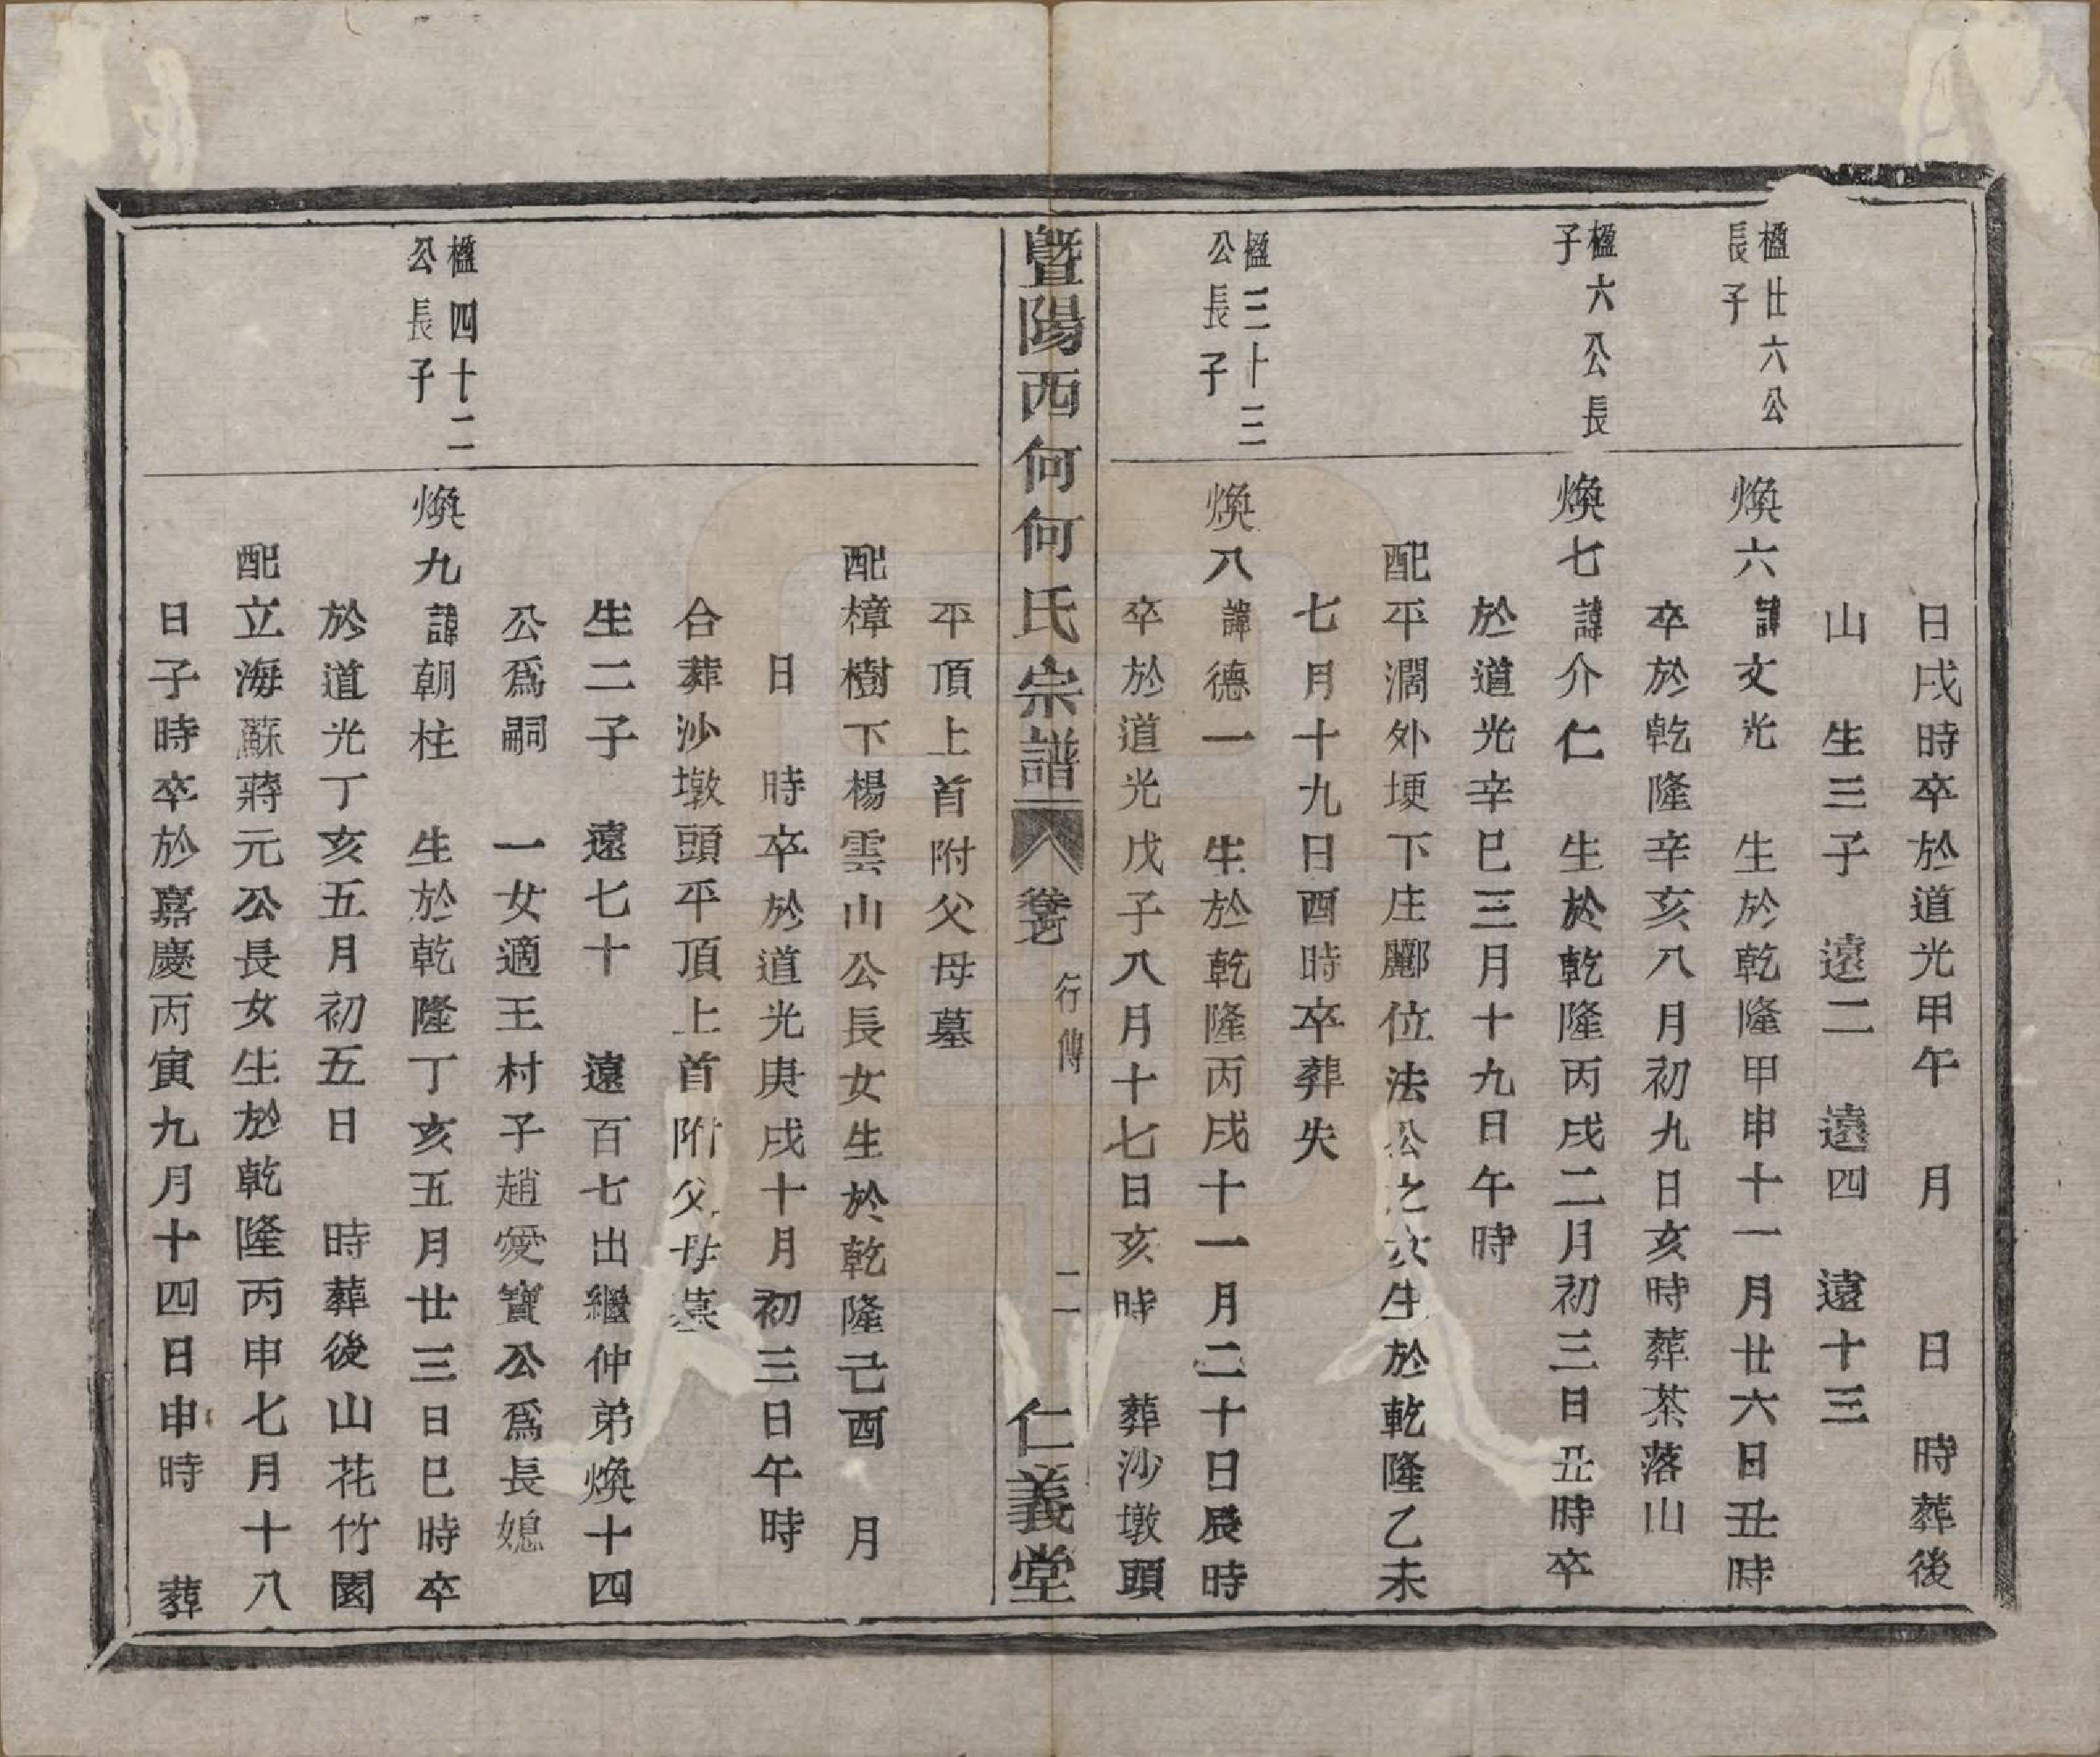 日戌時卒於道光甲午　月　　日　時葬後
山　生三子　遠二　遠四　遠十三
楹廿六公
長子
煥六諱文光　生於乾隆甲申十一月廿六日丑時
卒於乾隆辛亥八月初九日亥時葬茶落山
楹六公長
子
煥七諱介仁　生於乾隆丙戌二月初三日丑時卒
於道光辛巳三月十九日午時
配平濶外埂下庄酈位法公之女生於乾隆乙未
七月十九日酉時卒葬失
楹三十三
公長子
煥八諱德一　生於乾隆丙戌十一月二十日辰時
卒於道光戊子八月十七日亥時　葬沙墩頭
暨陽西何何氏宗譜　卷七　行傳　二　仁義堂
平頂上首附父母墓
配樟樹下楊雲山公長女生於乾隆己酉　月
日　時卒於道光庚戌十月初三日午時
合葬沙墩頭平頂上首附父母墓
生二子　遠七十　遠百七出繼仲弟煥十四
公爲嗣　一女適王村子趙愛寶公爲長媳
楹四十二
公長子
煥九諱朝柱　生於乾隆丁亥五月廿三日巳時卒
於道光丁亥五月初五日　時葬後山花竹園
配立海蘇蔣元公長女生於乾隆丙申七月十八
日子時卒於嘉慶丙寅九月十四日申時　葬